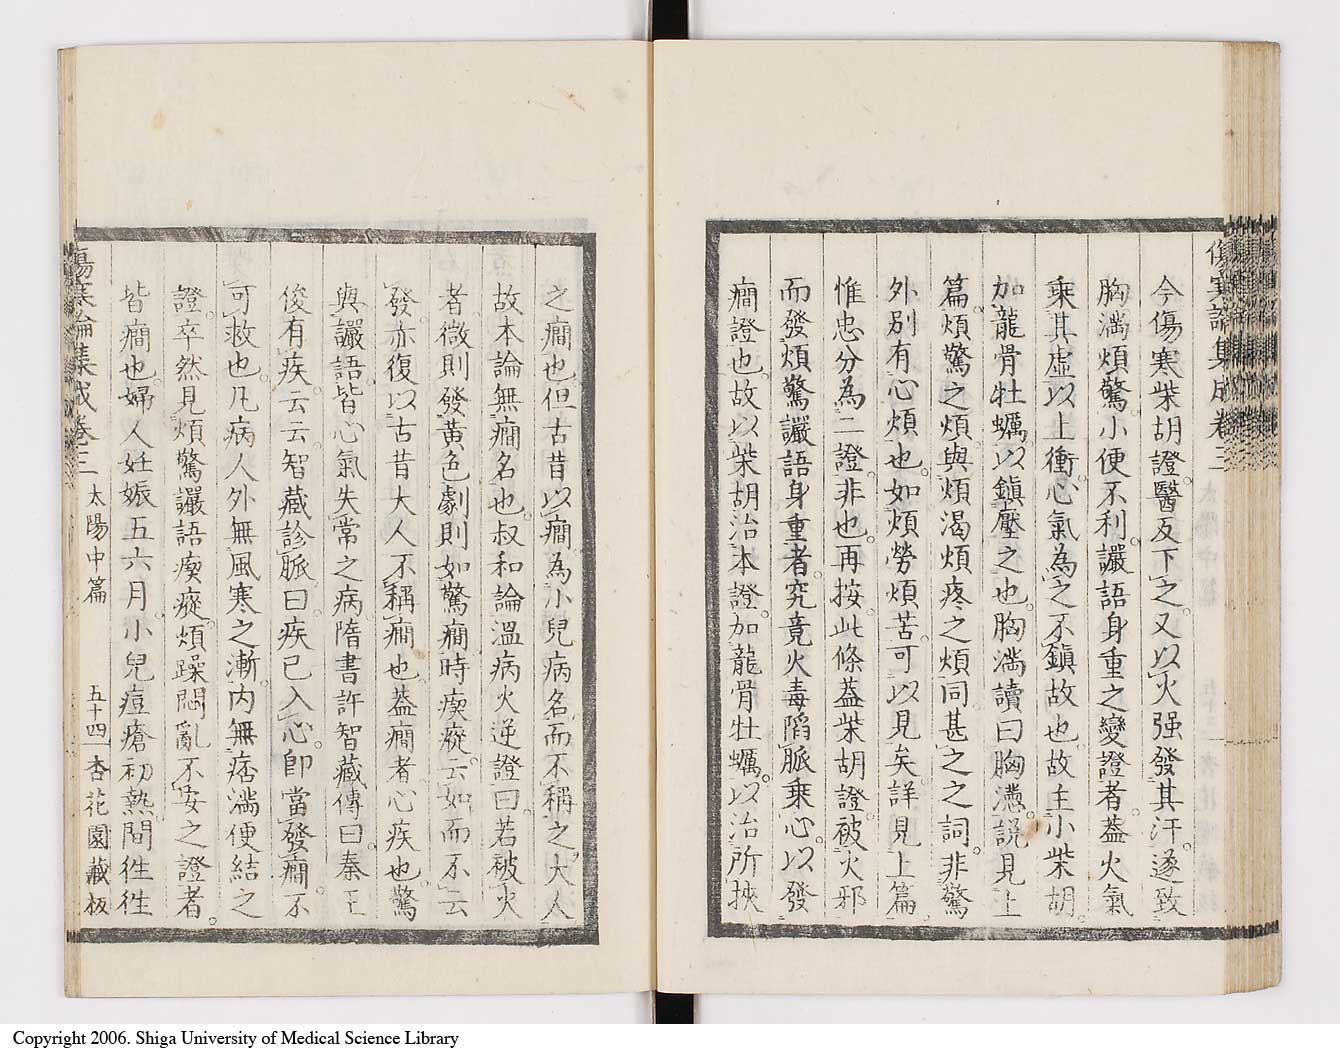 今傷寒柴胡證醫反下之又以火强發其汗遂致
胸滿煩驚小便不利讝語身重之變證者蓋火氣
乘其虛以上衝心氣為之不鎭故也故主小柴胡
加龍骨牡蠣以鎭壓之也胸滿讀曰胸懣說見上
篇煩驚之煩與煩渴煩疼之煩同甚之之詞非驚
外別有心煩也如煩勞煩苦可以見矣詳見上篇
惟忠分為二證非也再按此條蓋柴胡證被火邪
而發煩驚讝語身重者究竟火毒陷脈乘心以發
癇證也故以柴胡治本證加龍骨牡蠣以治所挾
之癇也但古昔以癇為小兒病名而不稱之大人
故本論無癇名也叔和論溫病火逆證曰若被火
者微則發黃色劇則如驚癇時瘈瘲云如而不云
發亦復以古昔大人不稱癇也蓋癇者心疾也驚
與讝語皆心氣失常之病隋書許智藏傳曰秦王
俊有疾云云智藏診脈曰疾已入心卽當發癇不
可救也凡病人外無風寒之漸內無痞滿便結之
證卒然見煩驚讝語瘈瘲煩躁悶亂不安之證者
皆癇也婦人妊娠五六月小兒痘瘡初熱間徃徃
傷寒論集成卷三 太陽中篇 五十四 杏花園藏板